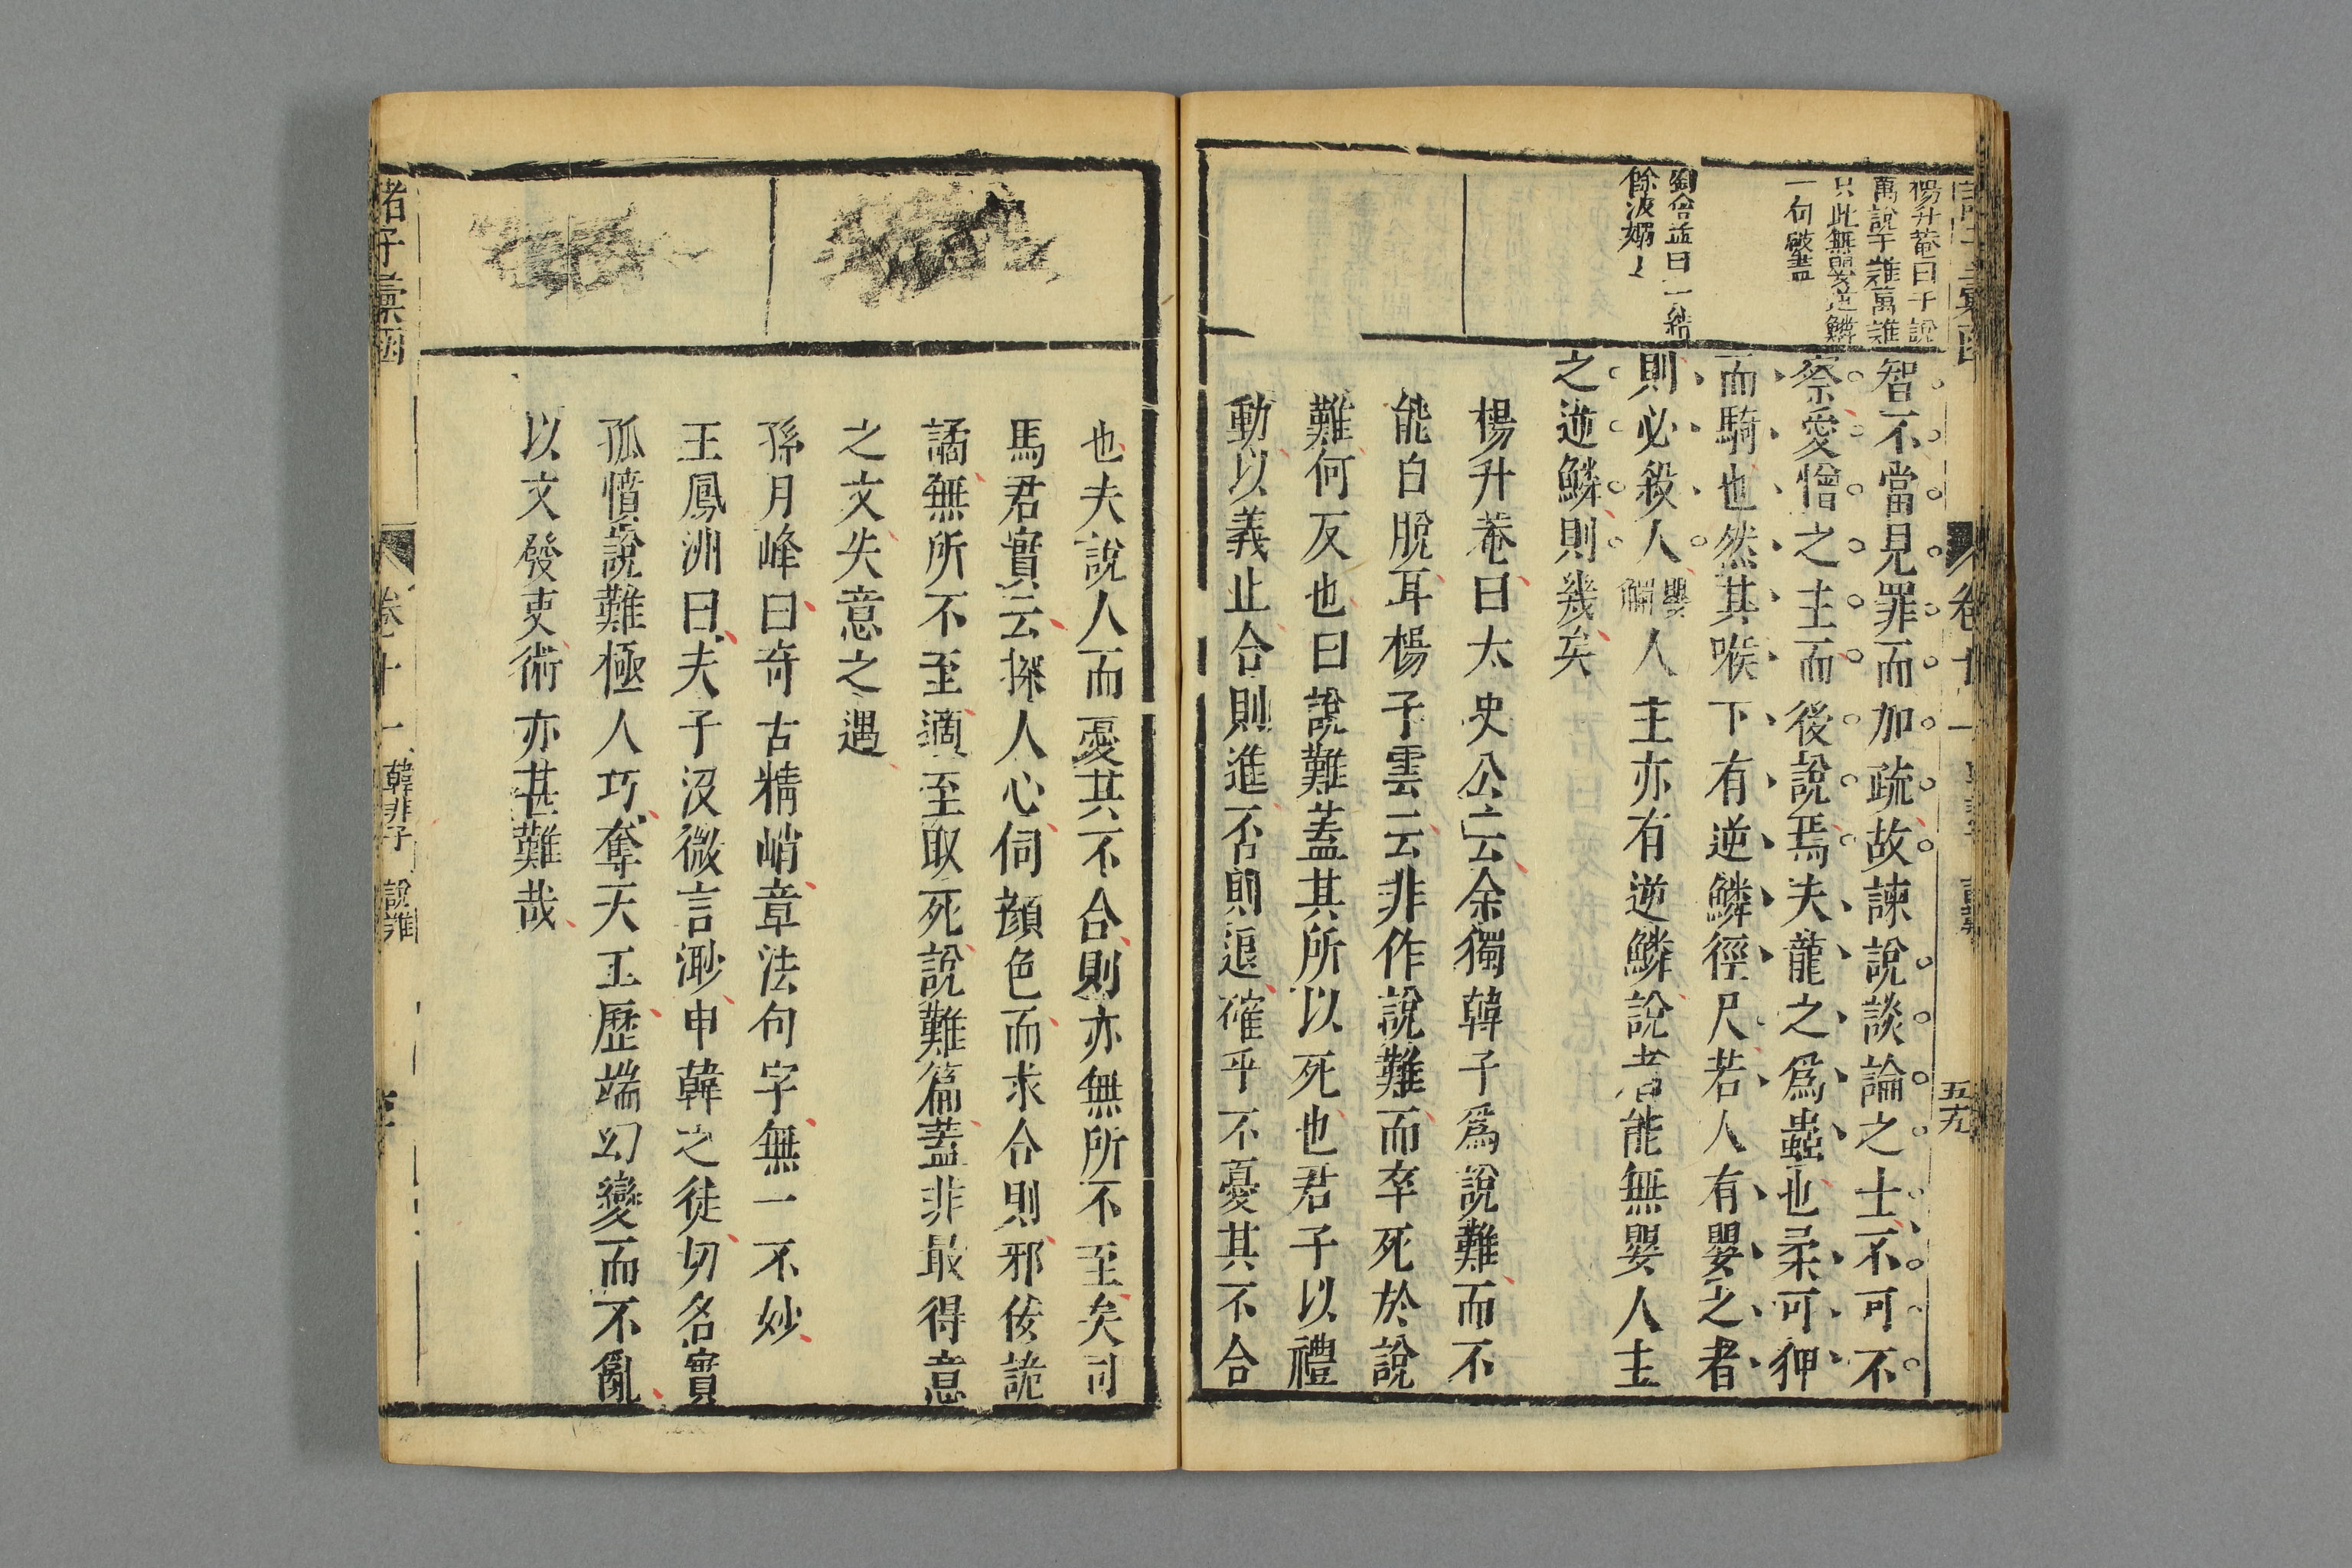 楊升菴曰千說
萬說千難萬難
只此無嬰逆鱗
一句破盡
一結
餘波嫋〻
智不當見罪而加疏故諫說談論之士不可不
察愛憎之主而後說焉夫龍之爲蟲也柔可狎
而騎也然其喉下有逆鱗徑尺若人有嬰之者
則必殺人嬰觸人主亦有逆鱗說者能無嬰人主
之逆鱗則幾矣
楊升菴曰太史公云余獨韓子爲說難而不
能自脫耳楊子雲云非作說難而卒死於說
難何反也曰說難蓋其所以死也君子以禮
動以義止合則進否則退確乎不憂其不合
也夫說人而憂其不合則亦無所不至矣司
馬君實云探人心伺顏色而求合則邪佞詭
譎無所不至適至取死說難篇蓋非最得意
之文失意之遇
孫月峰曰奇古精峭章法句字無一不妙
王鳳洲曰夫子沒微言渺申韓之徒切名實
孤憤說難極人巧奪天工歷端幻變而不亂
以文發吏術亦甚難哉
諸子彙函
卷十一
韓非子
說難